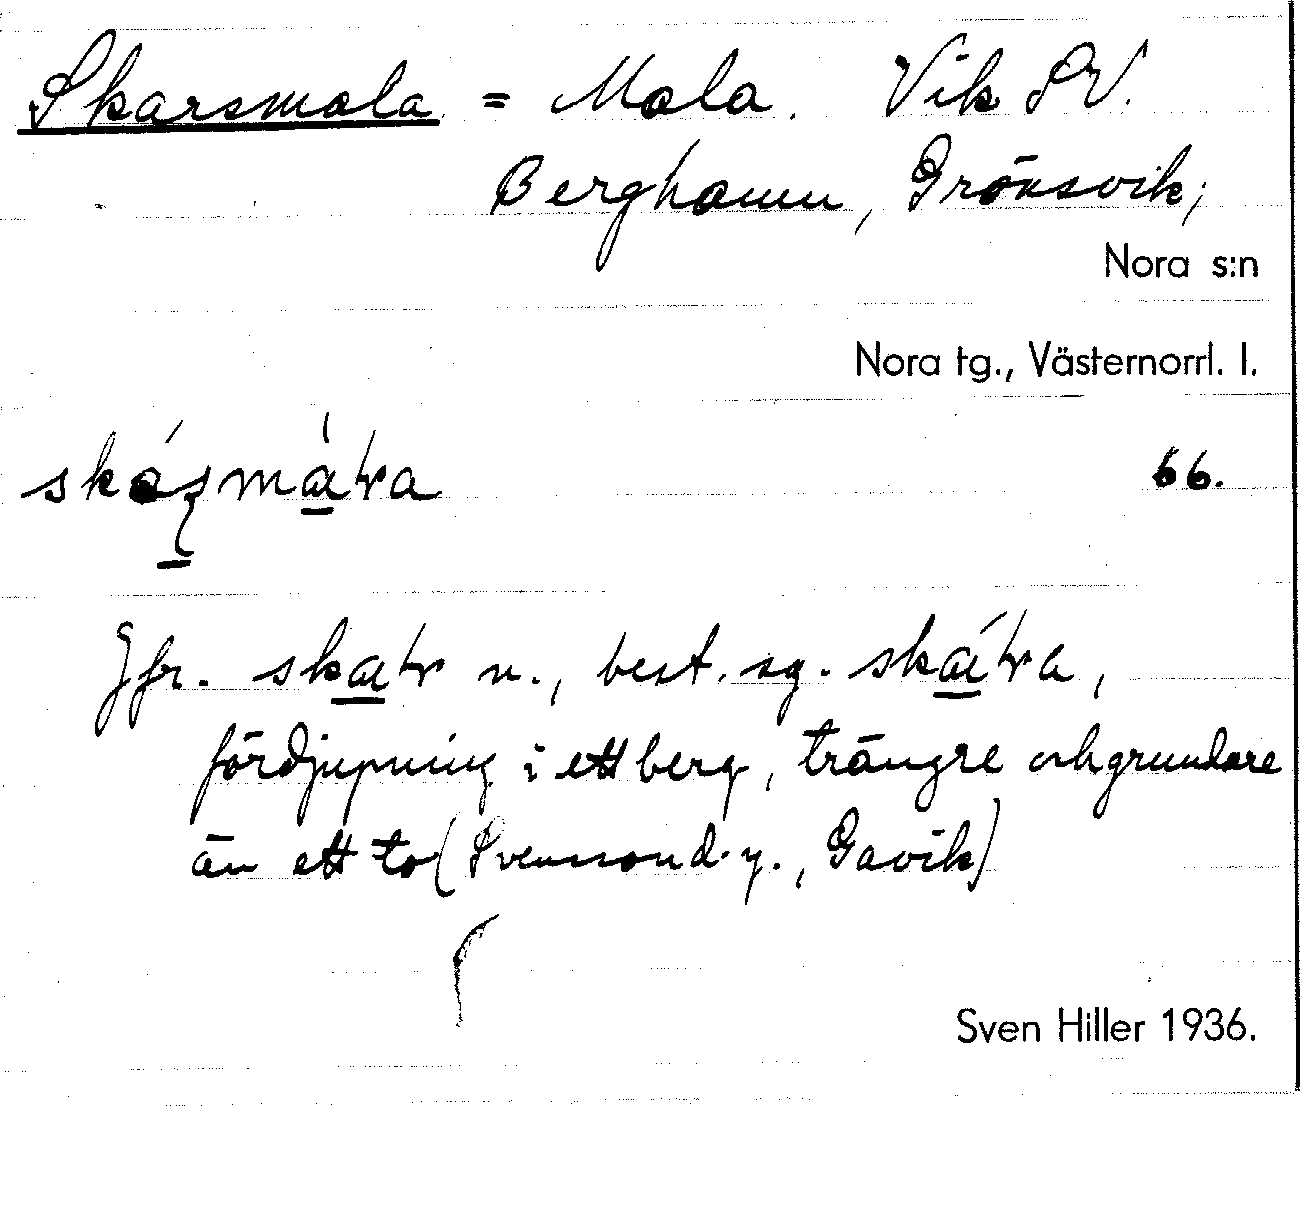 Skarsmala = Mala. Vik SV.
Berghamn, Grönsvik,
Nora s:n
Nora tg., Västernorrl. l.
66.
Jfr. skaɽ n., best. sg. skáɽa,
fördjupning i ett berg, trängre och grundare
än ett to (Svensson d.y., Gavik)
Sven Hiller 1936.